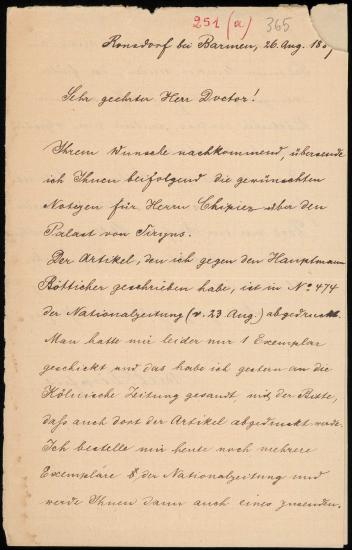 251 (a) 365
Ronsdorf bei Barmen, 26. Aug. 188
Sehr geehrter Herr Doctor!
Ihrem Wunsche nachkommend, übersende
ich Ihnen beifolgend die gewünschten
Notizen für Herrn Chipiez über den
Palast von Tiryns.
Der Artikel, den ich gegen den Hauptmann
Bötticher geschrieben habe, ist in No 474
der Nationalzeitung (v. 23 Aug.) abgedruckt.
Man hatte mir leider nur 1 Exemplar
geschickt und das habe ich gestern an die
Kölnische Zeitung gesandt, mit der Bitte,
dass auch dort der Artikel abgedruckt werde.
Ich bestelle mir heute noch mehrere
Exemplare der Nationalzeitung und
werde Ihnen dann auch eines zusenden.